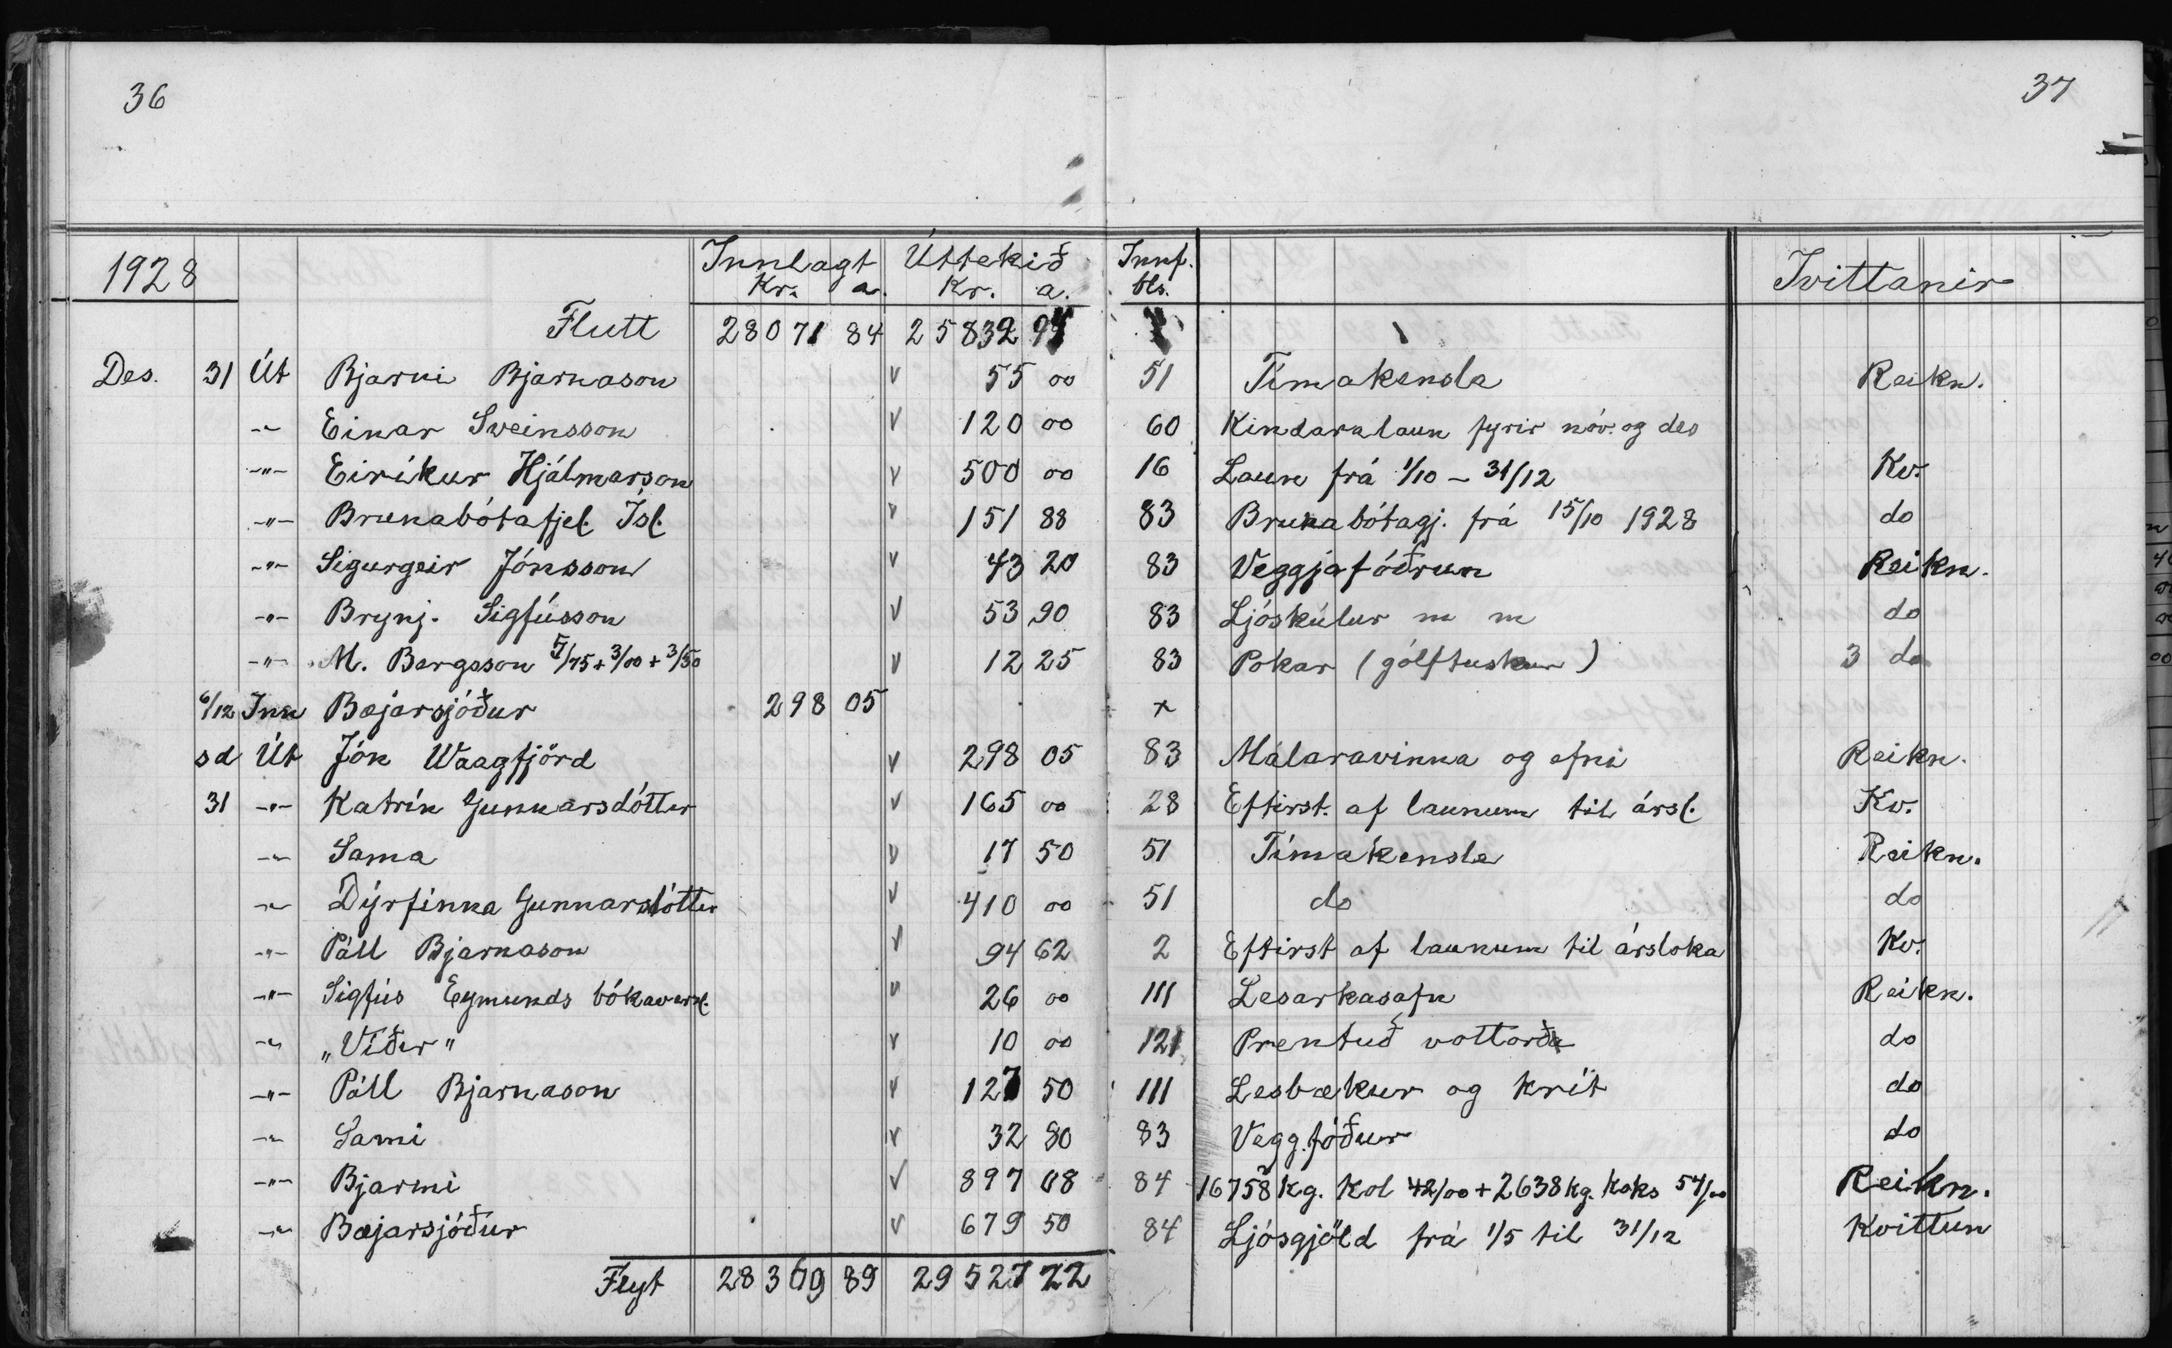 36
37
1928 Innlagt Úttekið Innf. Tvittanir
Kr. a. Kr. a. bls.
Flutt 28071 84 25832 94
Des. 31 Út Bjarni Bjarnason v 55 00 51 Tímakensla Reikn.
-"- Einar Sveinsson v 120 00 60 Kindaralaun fyrir nóv. og des
-"- Eiríkur Hjálmarson v 500 00 16 Laun frá 1/10 - 31/12 Kv.
-"- Brunabótafjel. Ísl. v 151 88 83 Brunabótagj. frá 15/10 1928 do
-"- Sigurgeir Jónsson v 43 20 83 Veggjafóðrun Reikn.
-"- Brynj. Sigfússon v 53 90 83 Ljóskúlur m m do
-"- M. Bergsson 5/75 + 3/00 + 3/50 v 12 25 83 Pokar (gólftuskur) 3 do
6/12 Inn Bæjarsjóður 298 05 x
sd Út Jón Waagfjörd v 298 05 83 Málaravinna og efni Reikn.
31 -"- Katrín Gunnarsdóttir v 165 00 28 Eftirst. af launum til ársl. Kv.
-"- Sama v 17 50 51 Tímakensla Reikn.
-"- Dýrfinna Gunnarsdóttir v 410 00 51 do do
-"- Páll Bjarnason v 94 62 2 Eftirst af launum til ársloka Kv.
-"- Sigfús Eymunds bókaversl. v 26 00 111 Lesarkasafn Reikn.
-"- „Víðir" v 10 00 121 Prentuð vottorð do
-"- Páll Bjarnason v 127 50 111 Lesbækur og krít do
-"- Sami v 32 80 83 Veggfóður do
-"- Bjarmi v 897 08 84 16758 kg. Kol 42/00 + 2638 kg. koks 54/00 Reikn.
-"- Bæjarsjóður v 679 50 84 Ljósgjöld frá 1/5 til 31/12 Kvittun
Flyt 28369 89 29527 22